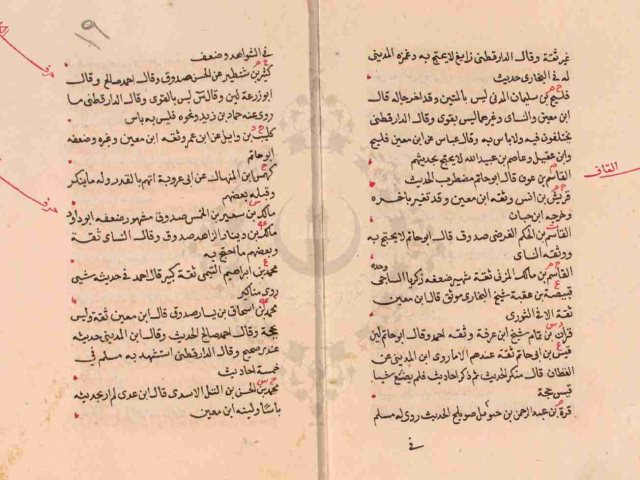 غير ثقة وقال الدارقطني زايغ لا يحتج به وغمزه المديني
له في البخاري حديث
فليح بن سليمان المدني ليس بالمتين وقد اخرجا له قال
ابن معين والنساي وغيرهما ليس بقوي وقال الدارقطني
يختلفون فيه ولا باس به وقال عباس عن ابن معين فليح
وابن عقيل وعاصم بن عبيد الله لا يحتج بحديثهم
القاف
القاسم بن عون قال ابوحاتم مضطرب الحديث
قريش بن انس وثقه ابن معين وقد تغير باخره
وخرجه ابن حبان
القاسم بن الحكم العرني صدوق قال ابوحاتم لا يحتج به
ووثقه النساي
القاسم بن مالك المزني ثقة شهير ضعفه زكريا الساجي وحده
قبيصة بن عقبة شيخ البخاري موثق قال ابن معين
ثقة الا في الثوري
قران بن تمام شيخ ابن عرفة وثقه احمد وقال ابوحاتم لين
قيس بن ابي حاتم ثقة عندهم الا ما روي ابن المديني عن
القطان قال منكر الحديث ثم ذكر احاديث فلم يصنع شيا
قيس حجة
قرة بن عبد الرحمن بن حيوئيل صويلح الحديث روي له مسلم
في
١٩
في الشواهد وضعف
كثير بن شنظير عن الحسن صدوق وقال احمد صالح وقال
ابوزرعة لين وقال س ليس بالقوي وقال الدارقطني ما
روي عنه حماد بن زيد وغيره فليس به باس
كليب بن وايل عن ابن عمر وثقه ابن معين وغيره وضعفه
ابوحاتم
كهمس بن المنهال عن ابي عروبة اتهم بالقدر وله ما ينكر
وقبله بعضهم
حرف
مالك بن سعير بن الخمس صدوق مشهور ضعفه ابوداود
مالك بن دينار الزاهد صدوق وقال النساي ثقة
وبعضهم ما احتج به
محمد بن ابراهيم التيمي ثقة كبير قال احمد في حديثه شي
روي مناكير
محمد بن اسحاق بن يسار صدوق قال ابن معين ثقة وليس
بحجة وقال احمد صالح الحديث وقال ابن المديني حديثه
عندي صحيح وقال الدارقطني استشهد به مسلم في
خمسة احاديث
محمد بن الحسن بن التل الاسدي قال ابن عدي لم ار بحديثه
باسا ولينه ابن معين